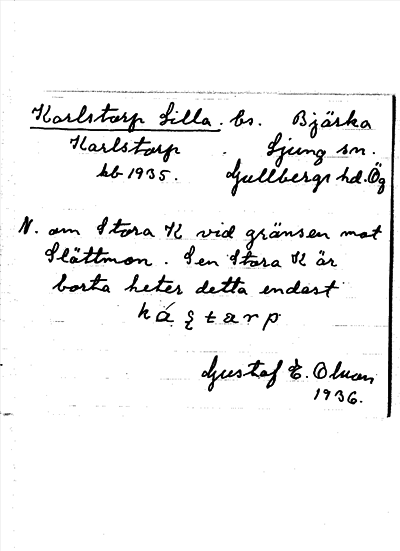 Karlstorp Lilla. bs. Bjärka
Karlstorp. Ljung sn.
kb 1935. Gullbergs hd. Ög
N. om Stora K vid gränsen mot
Slättmon. Sen Stora K är
borta heter detta endast
Gustaf E. Olson
1936.